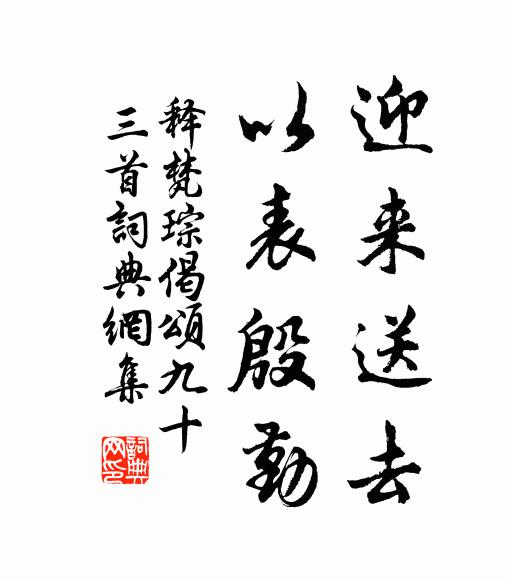 迎来送去
以表殷勤
释梵琮偈頌九十
三首詞典網集
詞典
网印